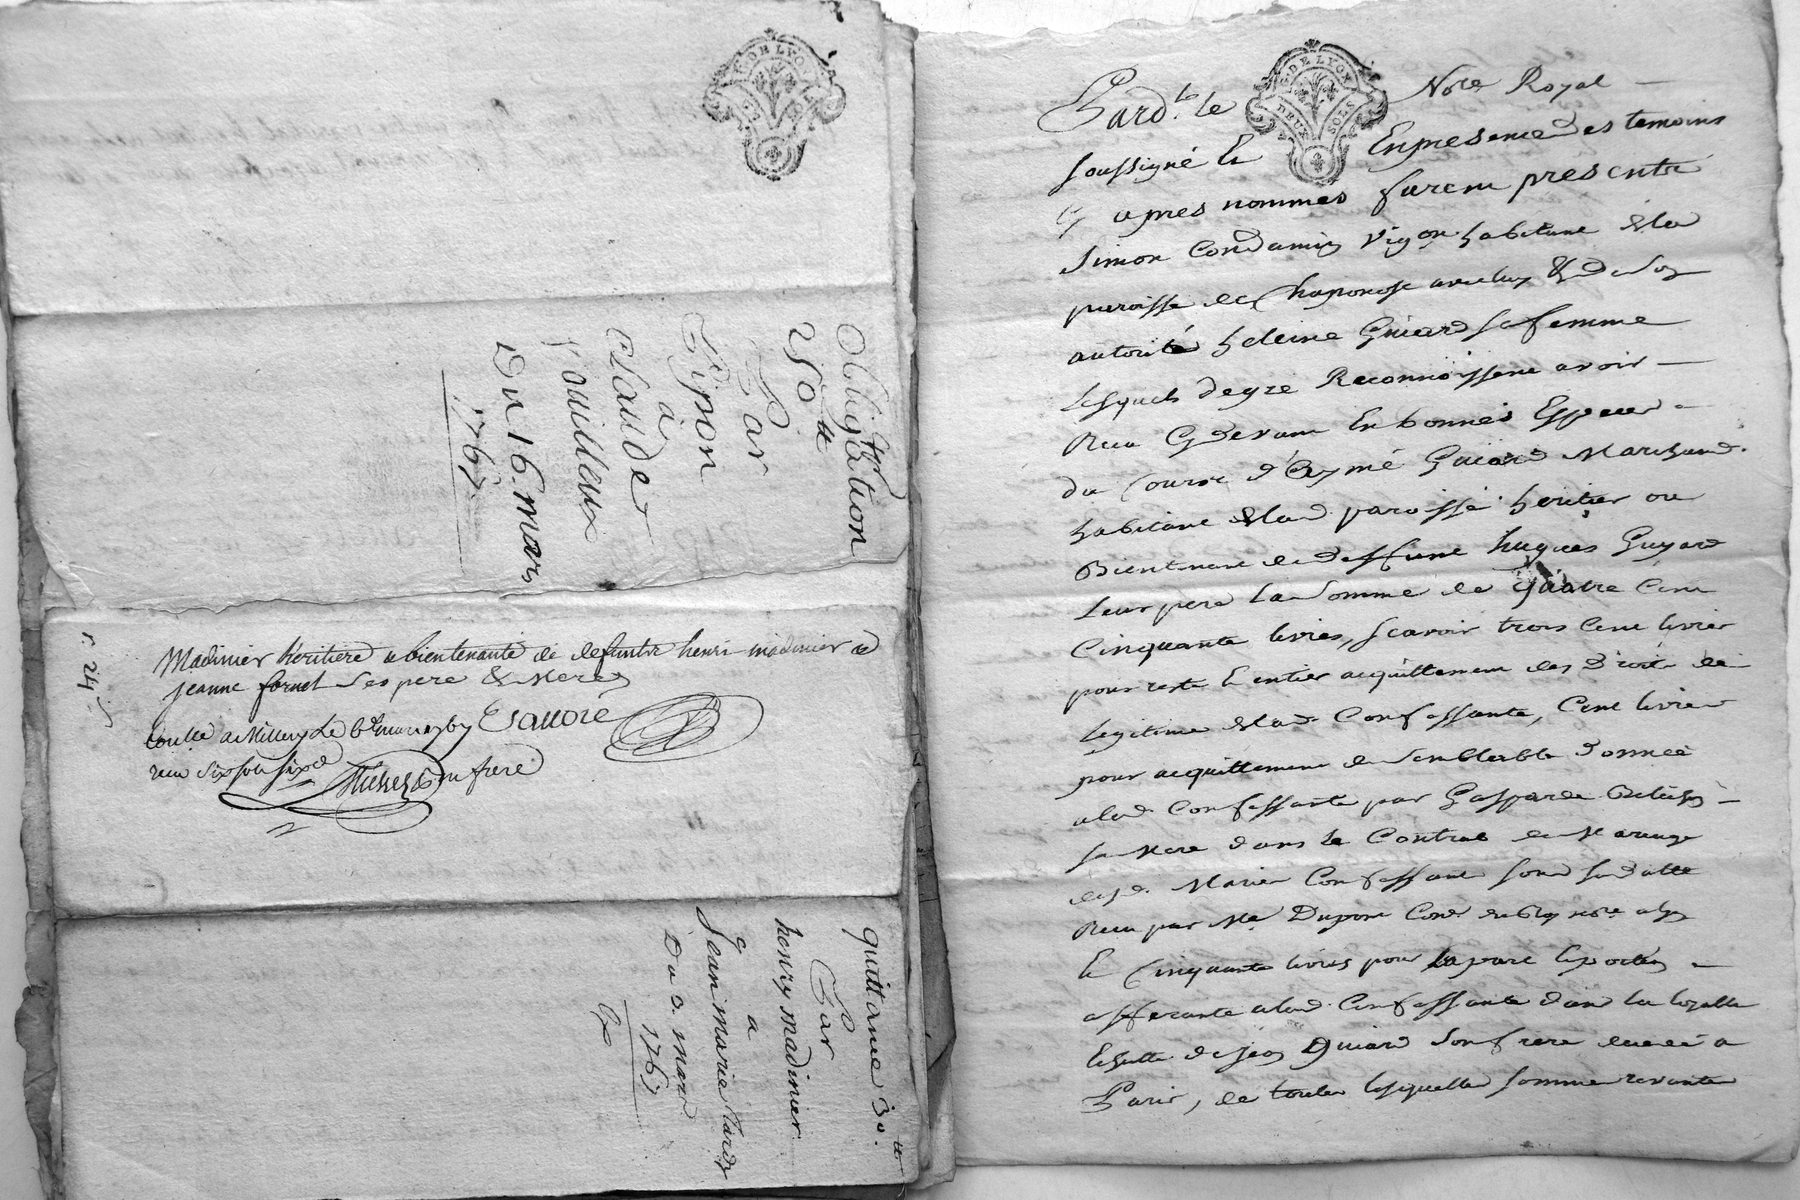 G. DE LYON
Obligation
250 tt
Par
Pipon
à
Claude
Souilleux
Du 16. mars
1767.
r 24 s
Madinier heritiere & bientenante de defuntz henri madinier &
jeanne fornet ses pere & Mere
Conllé a Millery Le
recu six sols six d
quittance 30. tt
Par
henry madinier
a
Jean marie Tardy
Du 3. mars
1767
G. DE LYON
DEUX SOLS
Pard.t le Notre Royal
soussigné Et En presence des temoins
cy apres nommes furent presentz
Simon Condamin Vigon habitant de la
paroisse de Chaponost avec luy & de Son
autorité heleine Guiard sa femme
Lesquels de gré Reconnoissent avoir
Receu Cy devant En bonnes Especes
du Sourn d'Eymé Guiard Marchand
habitant de lad. paroisse heritier ou
Bientenant de deffunt hugues Guyard
Leur pere La somme de quatre Cent
Cinquante livres, scavoir trois Cent livres
pour reste & entier acquittement des droits de
Legitime de lad. Confessante, Cent livres
pour acquittement de semblable donnée
a lad. Confessante par Gasparde
sa Mere dans le Contrat de Mariage
desd. Mariés Confessant
Receu par Me. Dupont
Et Cinquante livres pour la part & portion
afferante a lad. Confessante dans la
Echutte de jean Guiard son frere decedé a
Paris, de toutes lesquelles sommes revenantes